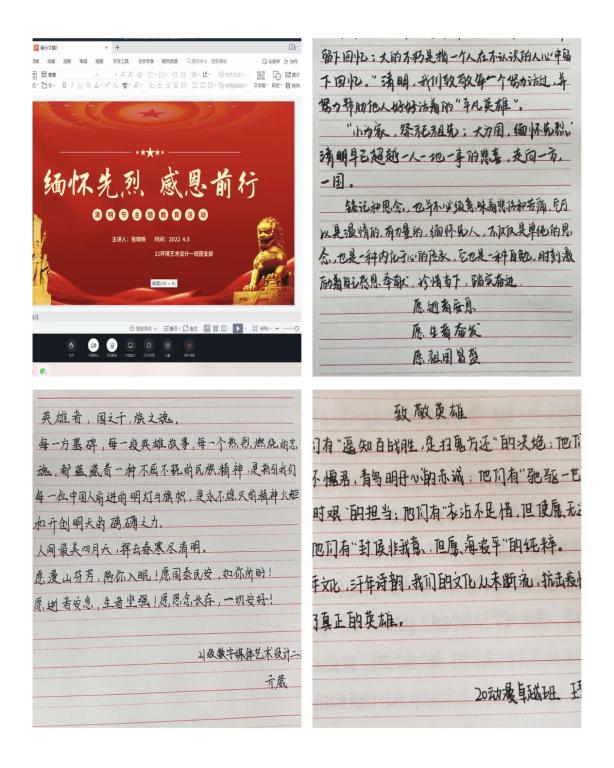 演示文稿1
缅怀先烈 感恩前行
清明节主题教育活动
时间：2022 4.5
21环境艺术设计一班团支部
截图(Alt + A)
留下回忆；大的不朽是指一个人在不认识的人心中留
下回忆。”清明，我们致敬每一个努力活过，并
努力帮助他人好好活着的“平凡英雄”。
“小为家，祭祀祖先；大为国，缅怀先烈。”
清明早已超越一人一地一事的悲喜，走向一方，
一国。
铭记和思念，也并不必须意味着悲伤和苦痛，它可
以是温情的，有力量的，缅怀先人，不仅仅是单纯的思
念，也是一种内化于心的传承，它也是一种自勉，时刻激
励着自己感恩奉献，珍惜当下，踏实奋进。
愿逝者安息
愿生者奋发
愿祖国昌盛
英雄者，国之干，族之魂。
每一方墓碑，每一段英雄故事，每一个热烈燃烧的忠
魂，都蕴藏着一种不屈不挠的民族精神，是指引我们
每一位中国人前进的明灯与旗帜，是永不熄灭的精神火炬
和开创明天的磅礴之力。
人间最美四月天，挥去春寒尽清明。
愿漫山芬芳，陪你入眠！愿国泰民安，如你所盼！
愿逝者安息，生者坚强！愿思念长存，一切安好！
21级数字媒体艺术设计二
亓葳
致敬英雄
们有“遥知百战胜，定扫鬼方还”的决绝；他们
不惧君，青鸟明丹心”的赤诚；他们有“驰驱一世
时艰”的担当；他们有“衣沾不足惜，但使愿无违
他们有“封侯非我意，但愿海波平”的纯粹。
年文化，三千年诗韵，我们的文化从未断流，抗击疫情
了真正的英雄。
20动漫卓越班 王